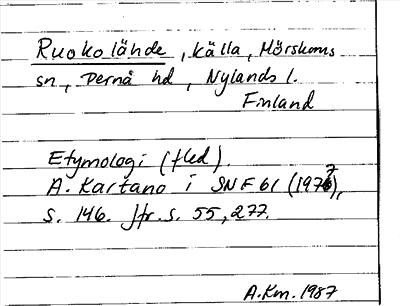 Ruokolähde, källa, Mörskoms
sn, Pernå hd, Nylands l.
Finland
Etymologi (fled).
A. Kartano i SNF 61 (1977),
s. 146. Jfr. s. 55, 277.
A.Km. 1987